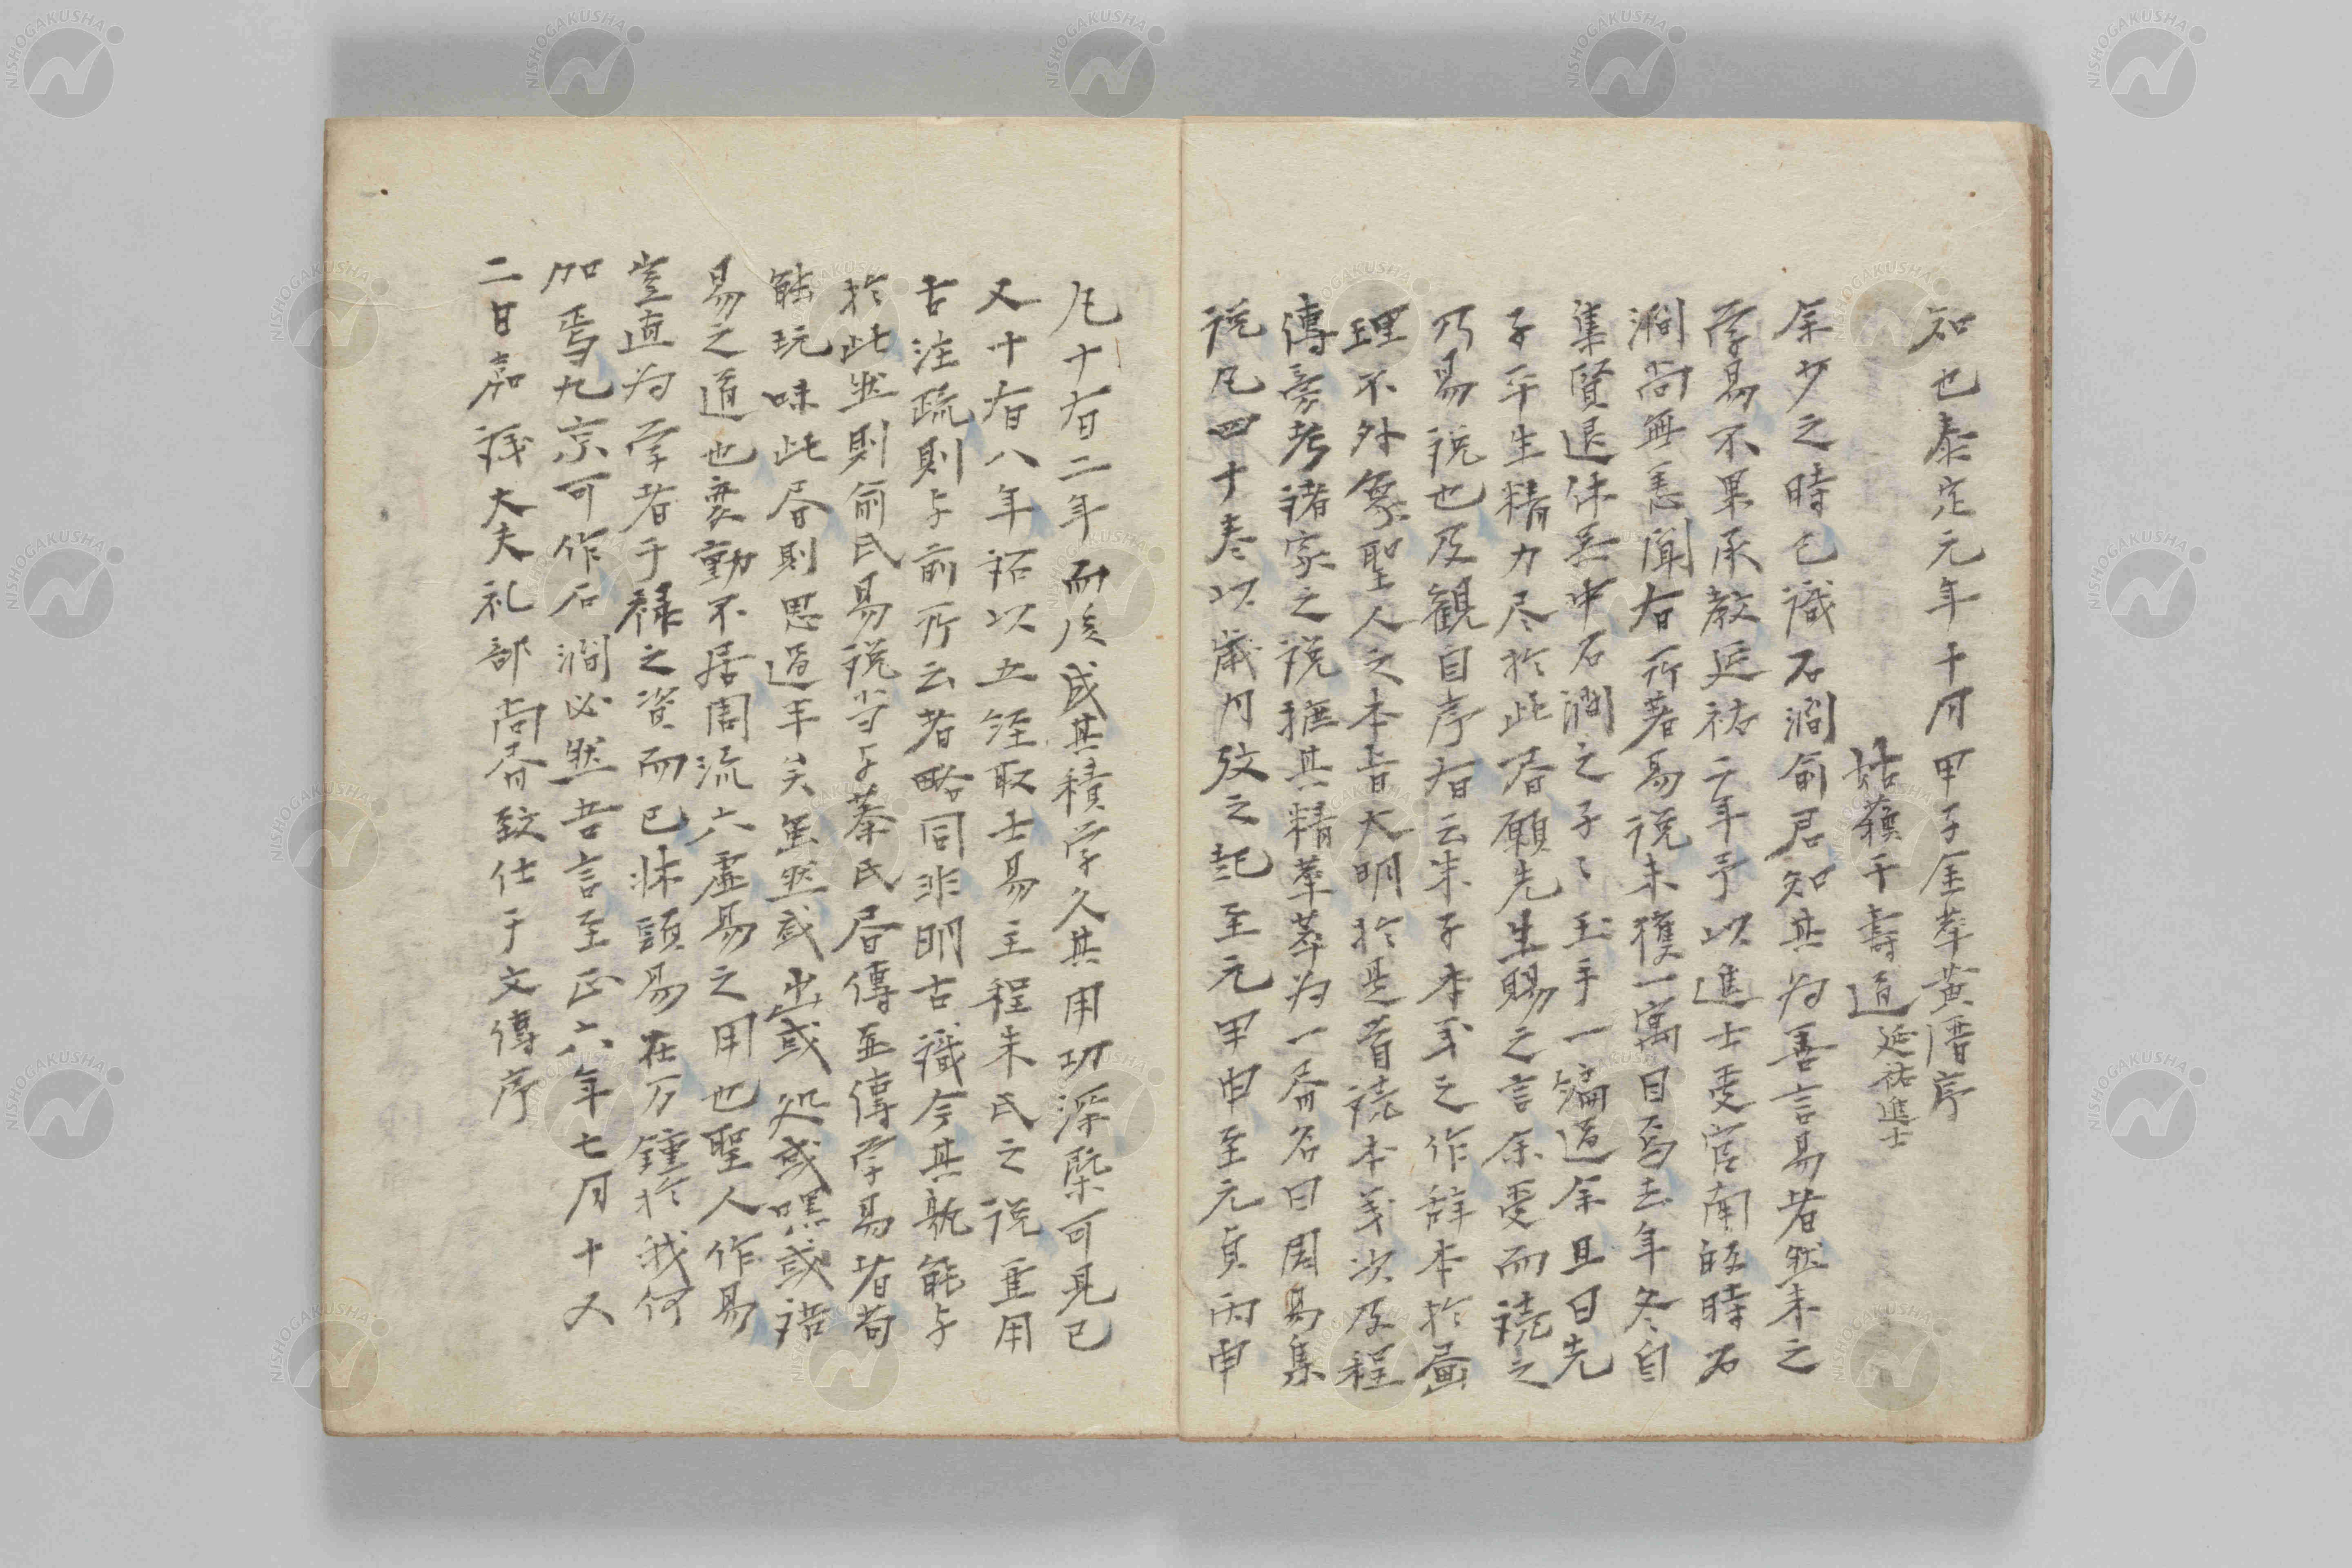 知也泰定元年十月甲子金華黄溍序
姑蘓干壽道延祐進士
余少之時已識石澗俞君知其为善言易者然未之
学易不果承教延祐二年予以進士受官南皈時石
澗尚無恙聞有所著易说未獲一寓目焉去年冬自
集賢退休吴中石澗之子子玉手一编過余且曰先
子平生精力尽於此書願先生賜之言余受而读之
乃易说也及観自序有云朱子本义之作辞本於畫
理不外象聖人之本旨大明於是首读本义次及程
傳旁考诸家之说摭其精華萃为一帋名曰周易集
说凡四十卷以歳月攷之起至元甲申至元貞丙申
凡十有二年而後成其積学久其用功深槩可見已
又十有八年诏以五经取士易主程朱氏之说兼用
古注疏則与前所云者略同非明古識今其孰能与
於此然則俞氏易说当与蔡氏書傳並傳学易者苟
能玩味此書則思過半矣虽然或出或処或嘿或语
易之道也変動不居周流六虚易之用也聖人作易
豈直为学者干禄之资而已㢤頤易在万鍾於我何
加焉九京可作石澗必然吾言至正六年七月十又
二日嘉议大夫礼部尚書致仕于文傳序